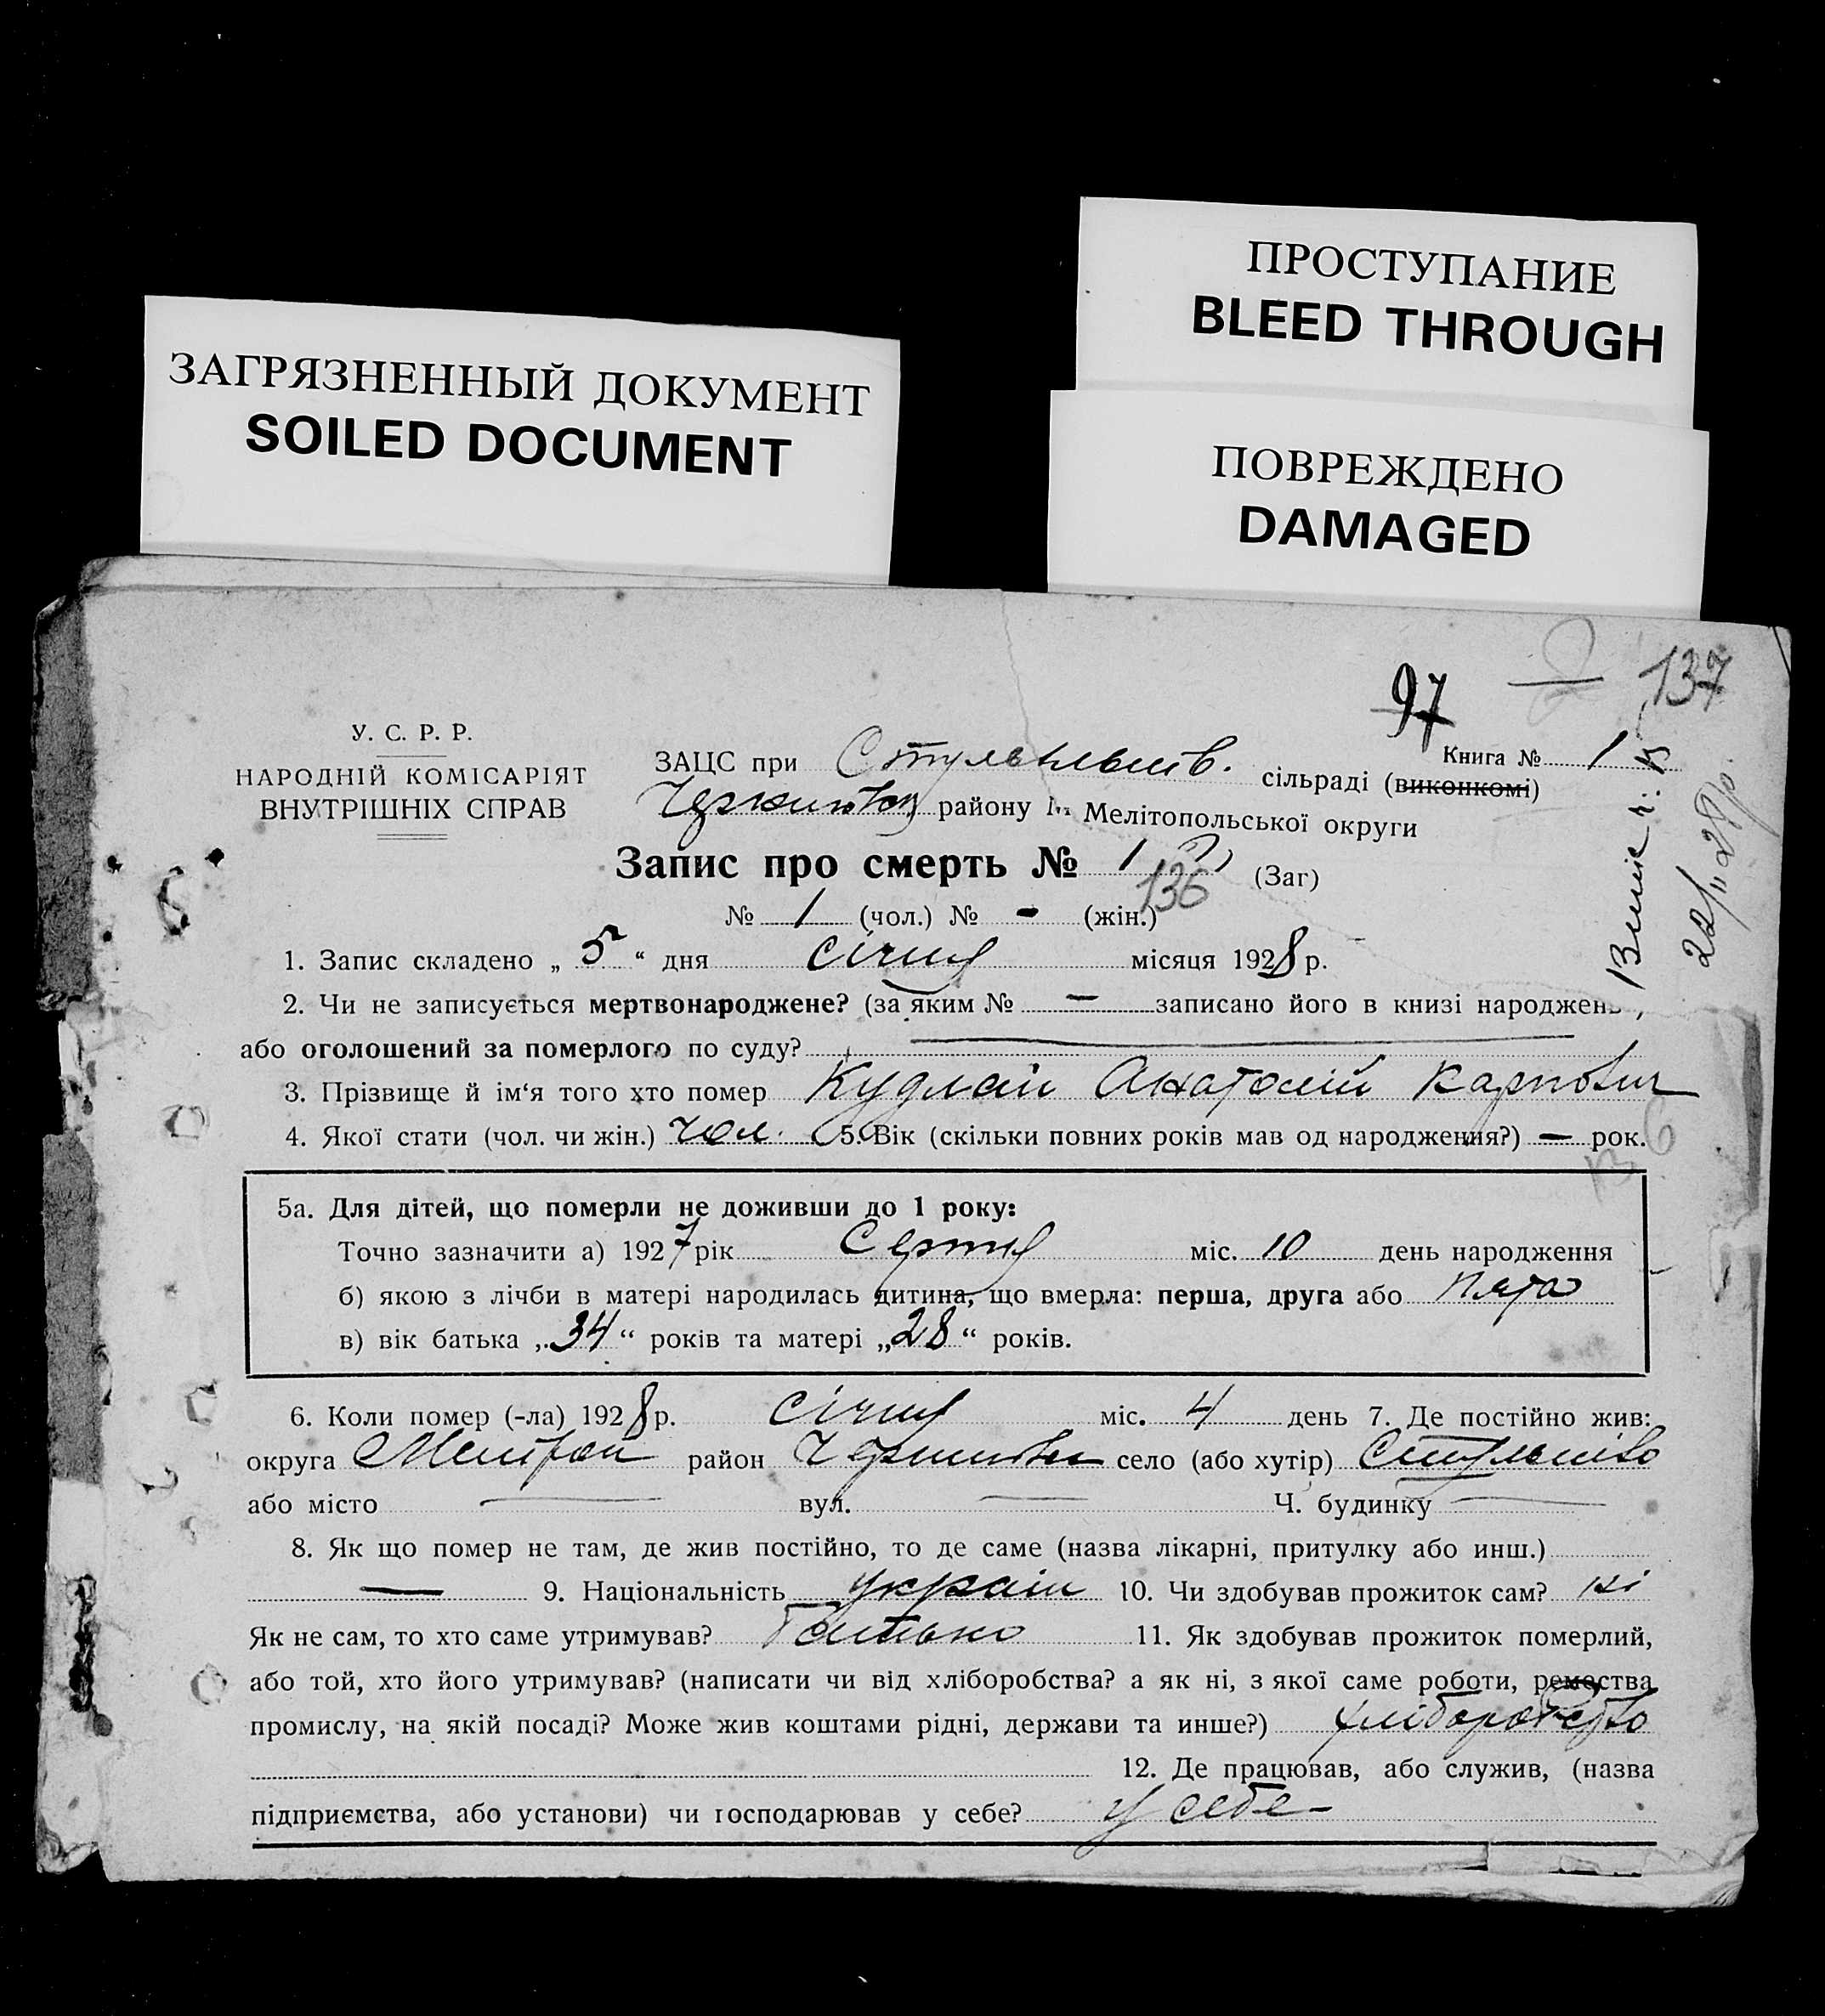 ПРОСТУПАНИЕ
BLEED THROUGH
ЗАГРЯЗНЕННЫЙ ДОКУМЕНТ
SOILED DOCUMENT
ПОВРЕЖДЕНО
DAMAGED
97 137
У. С. Р. Р.
НАРОДНІЙ КОМІСАРІЯТ
ВНУТРІШНІХ СПРАВ
Книга № 1
ЗАЦС при сільраді (виконкомі)
району Мелітопольської округи
Запис про смерть № 1 (Заг)
136
№ 1 (чол.) № - (жін.)
1. Запис складено „ 5 “ дня січня місяця 1928 р.
2. Чи не записується мертвонароджене? (за яким № — записано його в книзі народжень
або оголошений за померлого по суду? —
3. Прізвище й ім'я того хто помер Кудлай Анатолій Карпович
4. Якої стати (чол. чи жін.) чол. 5. Вік (скільки повних років мав од народження?) — рок.
5а. Для дітей, що померли не доживши до 1 року:
Точно зазначити а) 1927 рік Серпня міс. 10 день народження
б) якою з лічби в матері народилась дитина, що вмерла: перша, друга або пята
в) вік батька „34“ років та матері „28“ років.
6. Коли помер (-ла) 1928 р. січня міс. 4 день 7. Де постійно жив:
округа район село (або хутір)
або місто — вул. — Ч. будинку —
8. Як що помер не там, де жив постійно, то де саме (назва лікарні, притулку або инш.)
— 9. Національність україн 10. Чи здобував прожиток сам? ні
Як не сам, то хто саме утримував? батько 11. Як здобував прожиток померлий,
або той, хто його утримував? (написати чи від хліборобства? а як ні, з якої саме роботи, ремества
промислу, на якій посаді? Може жив коштами рідні, держави та инше?) хліборобство
12. Де працював, або служив, (назва
підприємства, або установи) чи господарював у себе? у себе